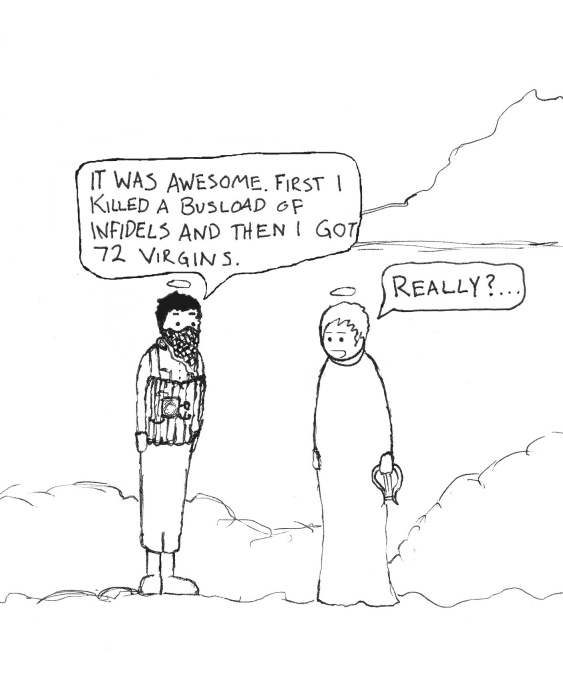 IT WAS AWESOME. FIRST I
KILLED A BUSLOAD OF
INFIDELS AND THEN I GOT
72 VIRGINS.
REALLY?...